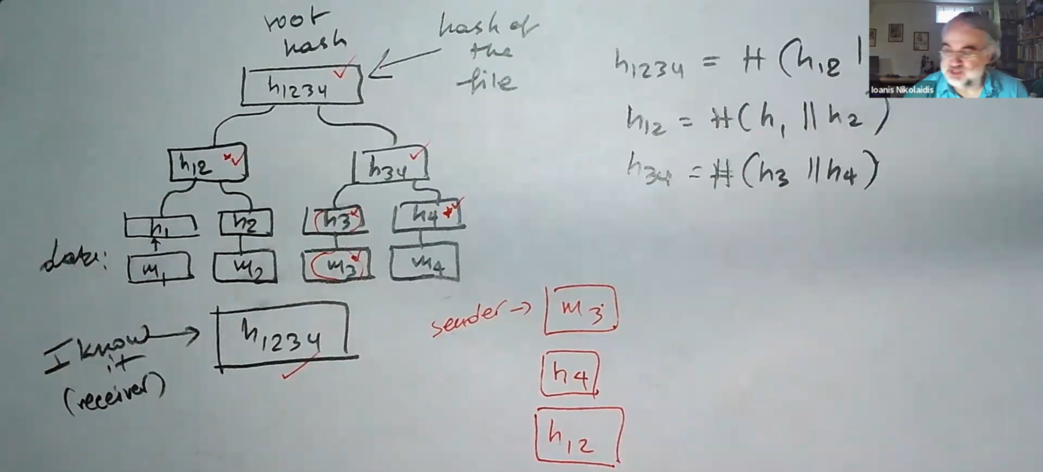 root
hash
hash of
the
file
h1234
h12
h34
h1
h2
h3
h4
data:
m1
m2
m3
m4
I know
it
(receiver)
h1234
sender →
m3
h4
h12
h1234 = H(h12 |
h12 = H(h1 || h2)
h34 = H(h3 || h4)
Ioanis Nikolaidis